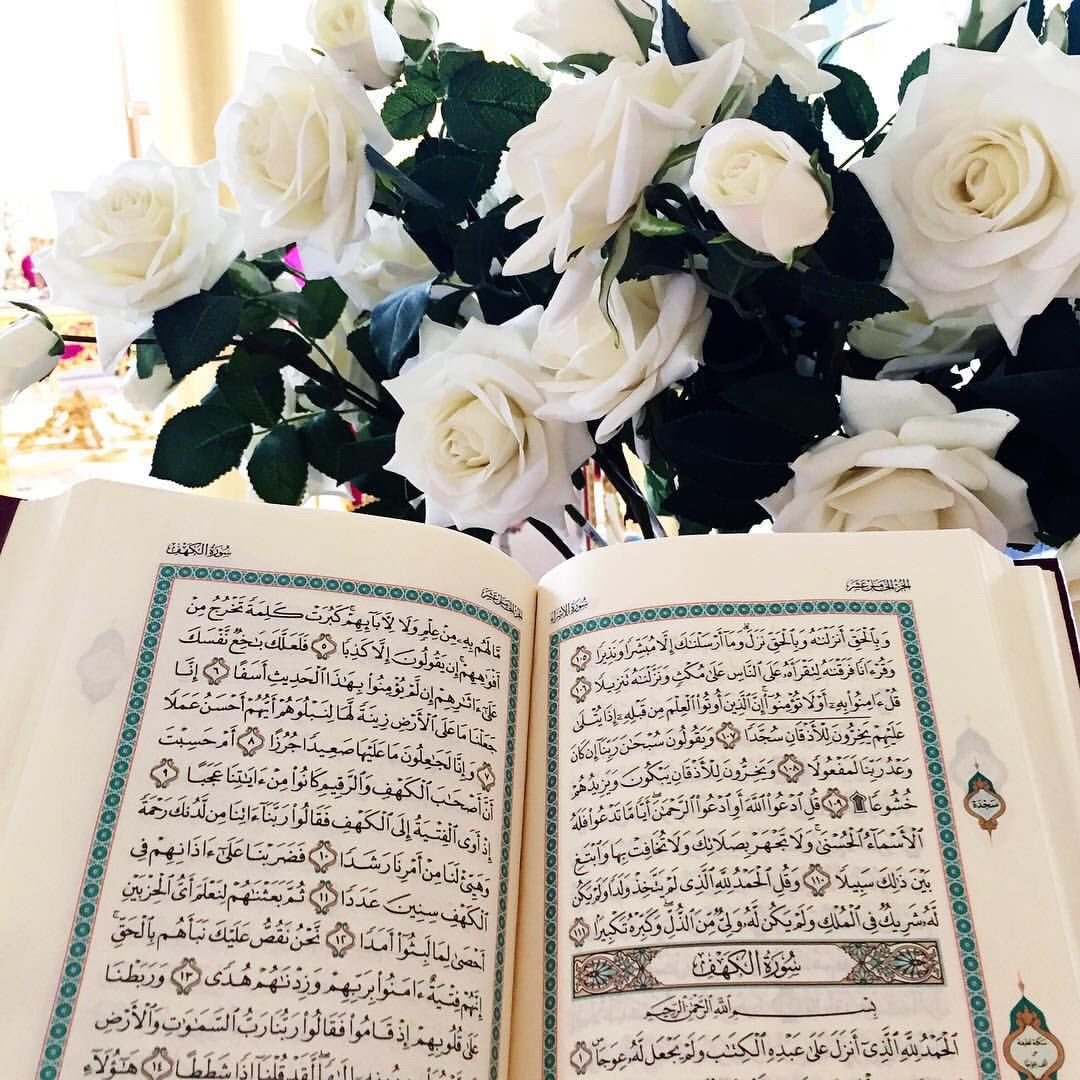 الجزء الخامس عشر
سورة الإسراء
وَبِٱلۡحَقِّ أَنزَلۡنَٰهُ وَبِٱلۡحَقِّ نَزَلَۗ وَمَآ أَرۡسَلۡنَٰكَ إِلَّا مُبَشِّرٗا وَنَذِيرٗا ١٠٥
وَقُرۡءَانٗا فَرَقۡنَٰهُ لِتَقۡرَأَهُۥ عَلَى ٱلنَّاسِ عَلَىٰ مُكۡثٖ وَنَزَّلۡنَٰهُ تَنزِيلٗا ١٠٦
قُلۡ ءَامِنُواْ بِهِۦٓ أَوۡ لَا تُؤۡمِنُوٓاْۚ إِنَّ ٱلَّذِينَ أُوتُواْ ٱلۡعِلۡمَ مِن قَبۡلِهِۦٓ إِذَا يُتۡلَىٰ
عَلَيۡهِمۡ يَخِرُّونَۤ لِلۡأَذۡقَانِۤ سُجَّدٗاۤ ١٠٧ وَيَقُولُونَ سُبۡحَٰنَ رَبِّنَآ إِن كَانَ
وَعۡدُ رَبِّنَا لَمَفۡعُولٗا ١٠٨ وَيَخِرُّونَ لِلۡأَذۡقَانِ يَبۡكُونَ وَيَزِيدُهُمۡ
خُشُوعٗا۩ ١٠٩ قُلِ ٱدۡعُواْ ٱللَّهَ أَوِ ٱدۡعُواْ ٱلرَّحۡمَٰنَۖ أَيّٗا مَّا تَدۡعُواْ فَلَهُ
ٱلۡأَسۡمَآءُ ٱلۡحُسۡنَىٰۚ وَلَا تَجۡهَرۡ بِصَلَاتِكَ وَلَا تُخَافِتۡ بِهَا وَٱبۡتَغِ
بَيۡنَ ذَٰلِكَ سَبِيلٗا ١١٠ وَقُلِ ٱلۡحَمۡدُ لِلَّهِ ٱلَّذِي لَمۡ يَتَّخِذۡ وَلَدٗا وَلَمۡ يَكُن
لَّهُۥ شَرِيكٞ فِي ٱلۡمُلۡكِ وَلَمۡ يَكُن لَّهُۥ وَلِيّٞ مِّنَ ٱلذُّلِّۖ وَكَبِّرۡهُ تَكۡبِيرَۢا ١١١
سُورَةُ الكَهۡفِ
بِسۡمِ ٱللَّهِ ٱلرَّحۡمَٰنِ ٱلرَّحِيمِ
ٱلۡحَمۡدُ لِلَّهِ ٱلَّذِيٓ أَنزَلَ عَلَىٰ عَبۡدِهِ ٱلۡكِتَٰبَ وَلَمۡ يَجۡعَل لَّهُۥ عِوَجَاۜ ١
سجدة
سكتة لطيفة
الجزء الخامس عشر
سورة الكهف
مَّا لَهُم بِهِۦ مِنۡ عِلۡمٖ وَلَا لِأٓبَآئِهِمۡۚ كَبُرَتۡ كَلِمَةٗ تَخۡرُجُ مِنۡ
أَفۡوَٰهِهِمۡۚ إِن يَقُولُونَ إِلَّا كَذِبٗا ٥ فَلَعَلَّكَ بَٰخِعٞ نَّفۡسَكَ
عَلَىٰٓ ءَاثَٰرِهِمۡ إِن لَّمۡ يُؤۡمِنُواْ بِهَٰذَا ٱلۡحَدِيثِ أَسَفًا ٦ إِنَّا
جَعَلۡنَا مَا عَلَى ٱلۡأَرۡضِ زِينَةٗ لَّهَا لِنَبۡلُوَهُمۡ أَيُّهُمۡ أَحۡسَنُ عَمَلٗا
٧ وَإِنَّا لَجَٰعِلُونَ مَا عَلَيۡهَا صَعِيدٗا جُرُزًا ٨ أَمۡ حَسِبۡتَ
أَنَّ أَصۡحَٰبَ ٱلۡكَهۡفِ وَٱلرَّقِيمِ كَانُواْ مِنۡ ءَايَٰتِنَا عَجَبًا ٩
إِذۡ أَوَى ٱلۡفِتۡيَةُ إِلَى ٱلۡكَهۡفِ فَقَالُواْ رَبَّنَآ ءَاتِنَا مِن لَّدُنكَ رَحۡمَةٗ
وَهَيِّئۡ لَنَا مِنۡ أَمۡرِنَا رَشَدٗا ١٠ فَضَرَبۡنَا عَلَىٰٓ ءَاذَانِهِمۡ فِي
ٱلۡكَهۡفِ سِنِينَ عَدَدٗا ١١ ثُمَّ بَعَثۡنَٰهُمۡ لِنَعۡلَمَ أَيُّ ٱلۡحِزۡبَيۡنِ
أَحۡصَىٰ لِمَا لَبِثُوٓاْ أَمَدٗا ١٢ نَّحۡنُ نَقُصُّ عَلَيۡكَ نَبَأَهُم بِٱلۡحَقِّۚ
إِنَّهُمۡ فِتۡيَةٌ ءَامَنُواْ بِرَبِّهِمۡ وَزِدۡنَٰهُمۡ هُدٗى ١٣ وَرَبَطۡنَا
عَلَىٰ قُلُوبِهِمۡ إِذۡ قَامُواْ فَقَالُواْ رَبُّنَا رَبُّ ٱلسَّمَٰوَٰتِ وَٱلۡأَرۡضِ
إِلَٰهٗاۖ لَّقَدۡ قُلۡنَآ إِذٗا شَطَطًا ١٤ هَٰٓؤُلَآءِ